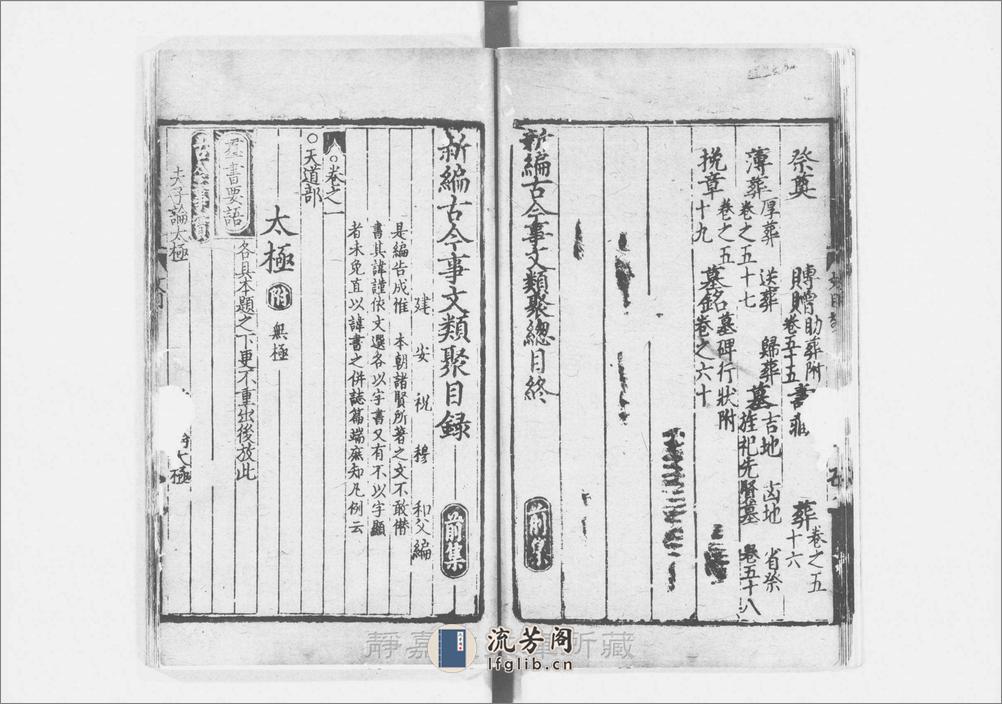 祭奠 賻贈助葬附 卷五十五 書 葬 卷之五十六
薄葬 厚葬 卷之五十七 送葬 歸葬 墓 吉地 凶地 省祭 旌祀先賢墓 卷五十八
挽章 卷之五十九 墓銘 墓碑行狀附 卷之六十
新編古今事文類聚總目終 前集
新編古今事文類聚目録 前集
建安祝穆和父編
是編告成惟 本朝諸賢所著之文不敢僭
書其諱謹依文選各以字書又有不以字顯
者未免直以諱書之併誌篇端庶知凡例云
卷之一
天道部
太極 附 無極
羣書要語 各具本題之下更不重出後放此
夫子論太極
太極
靜嘉 所藏
流芳阁
lfglib.cn